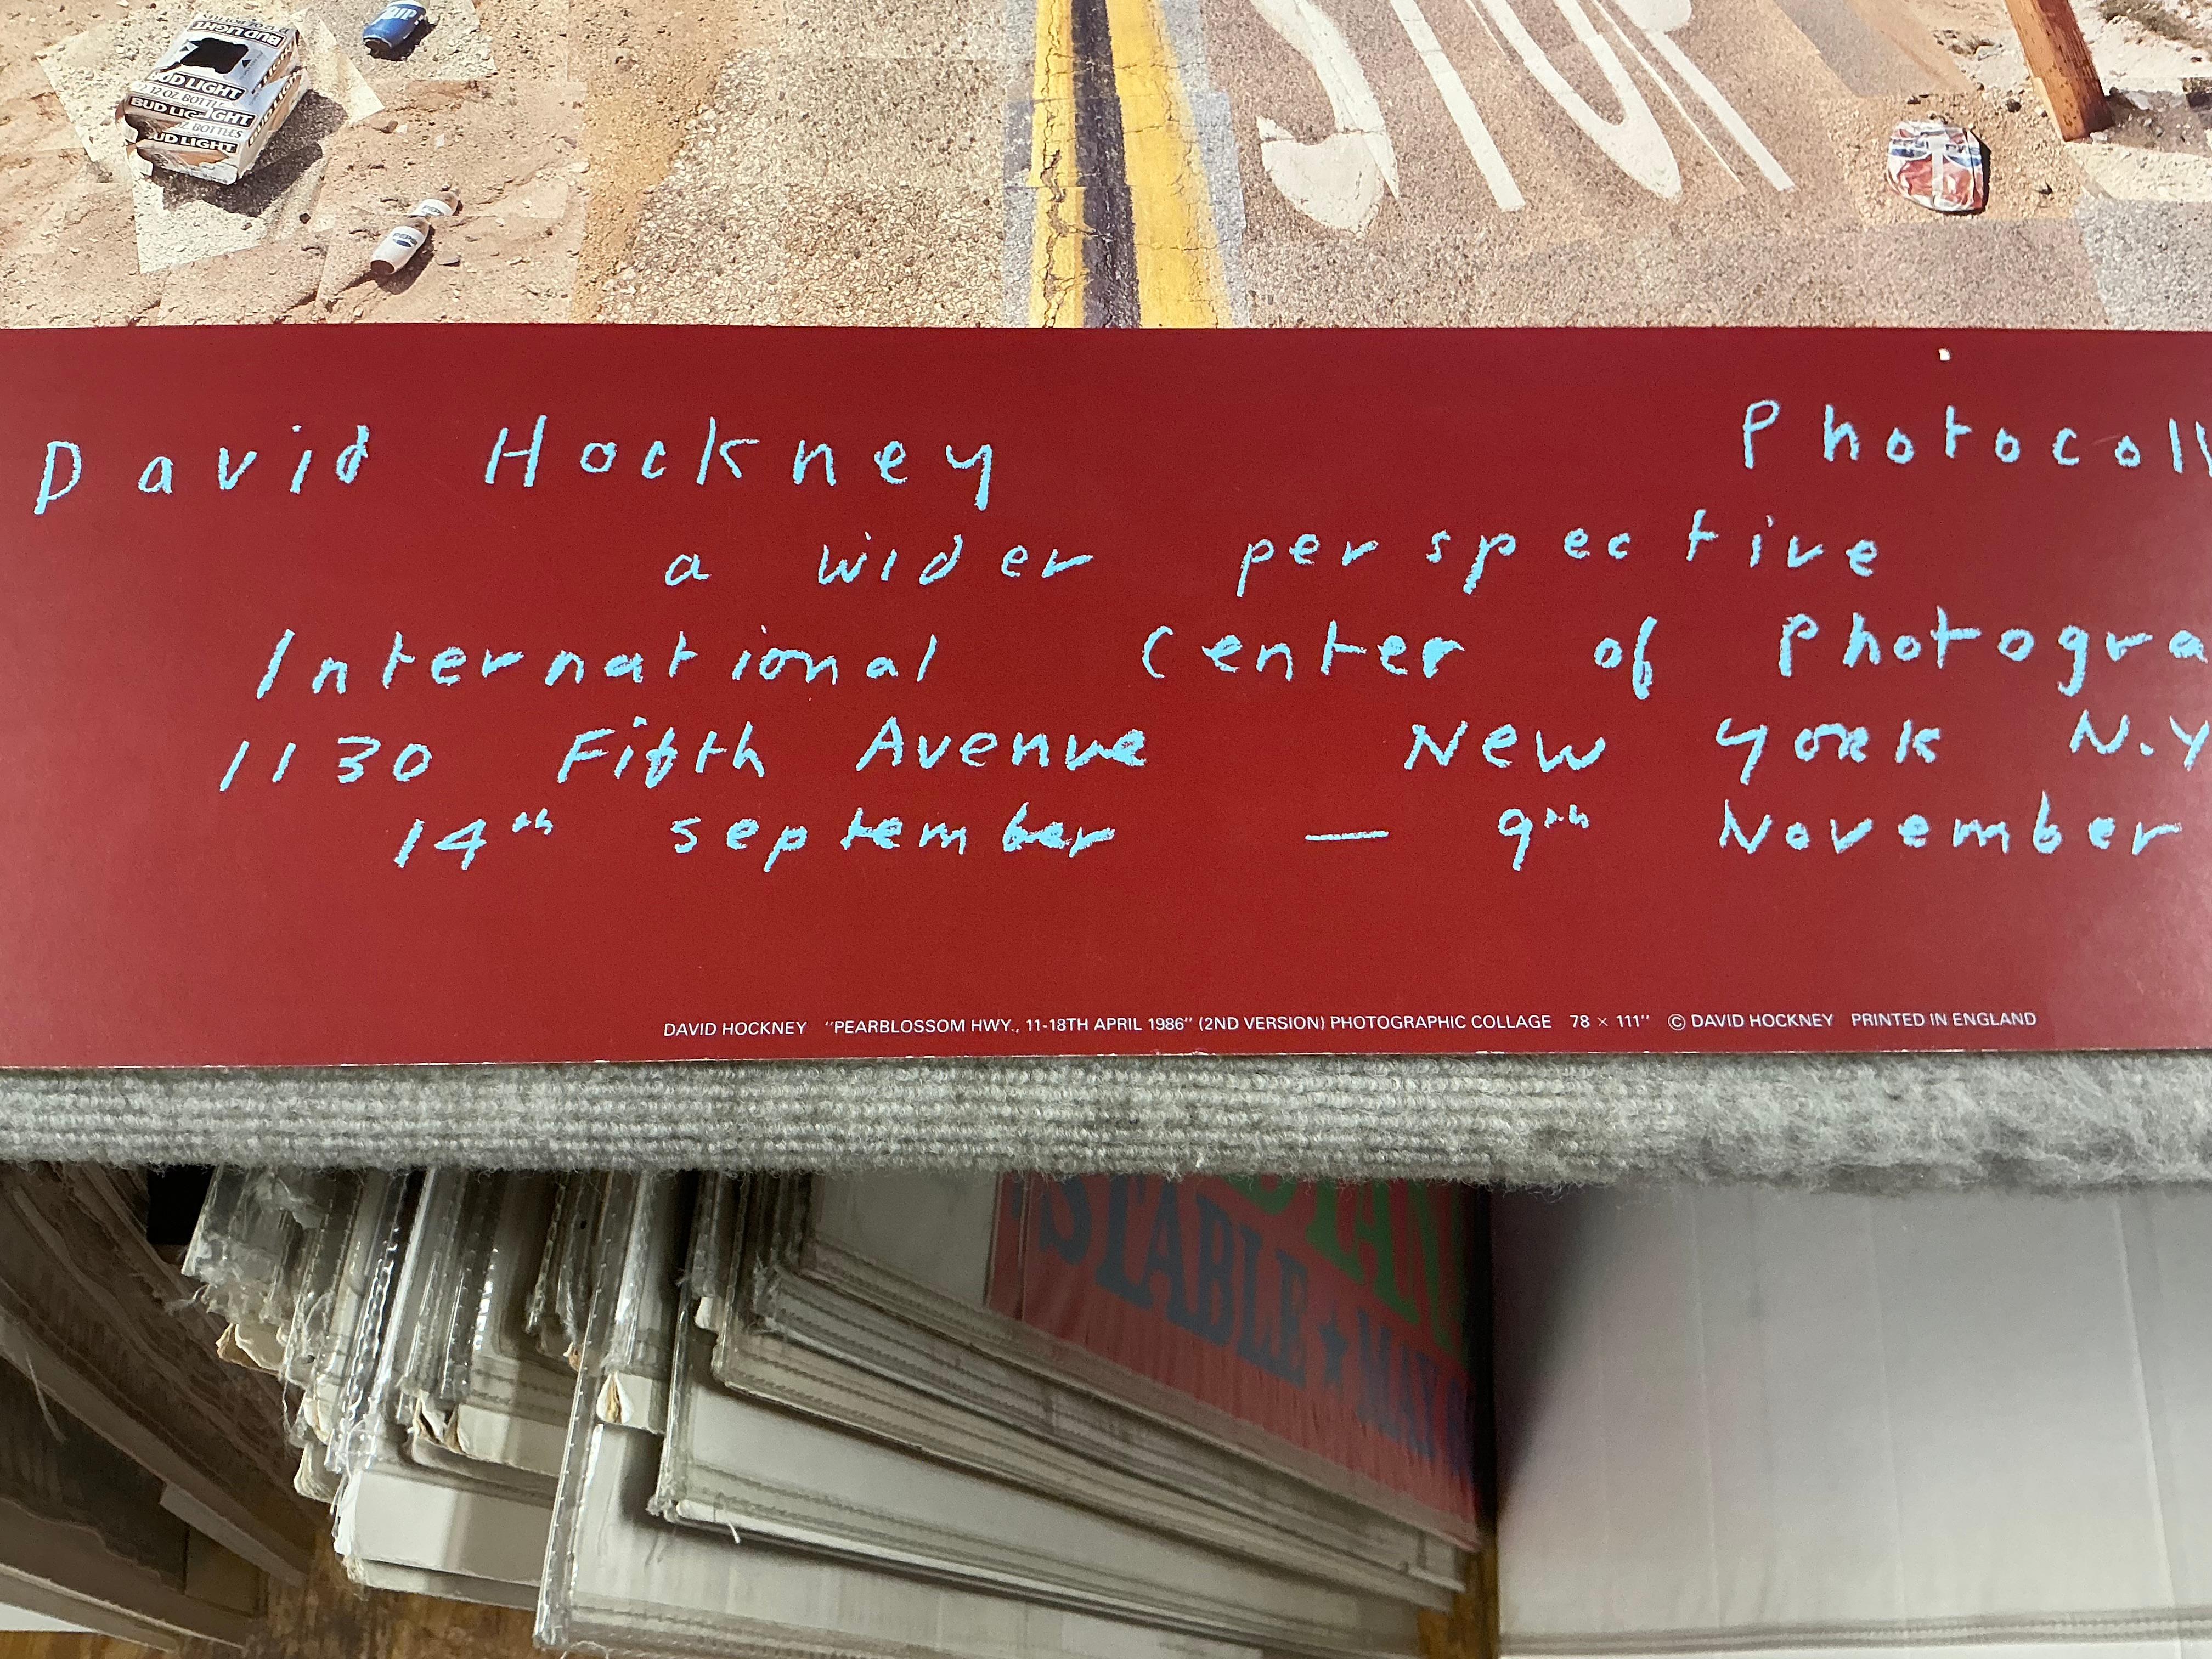 BUD LIGHT
BUD LIGHT
12 OZ. BOTTL
BUD LIGHT
Z. BOTTLES
UD LIGHT
PEPSI
STOP
David Hockney Photocoll
a wider perspective
International Center of Photogra
1130 Fifth Avenue New York N.Y
14th september — 9th November
DAVID HOCKNEY "PEARBLOSSOM HWY., 11-18TH APRIL 1986" (2ND VERSION) PHOTOGRAPHIC COLLAGE 78 × 111" © DAVID HOCKNEY PRINTED IN ENGLAND
STABLE★MAY